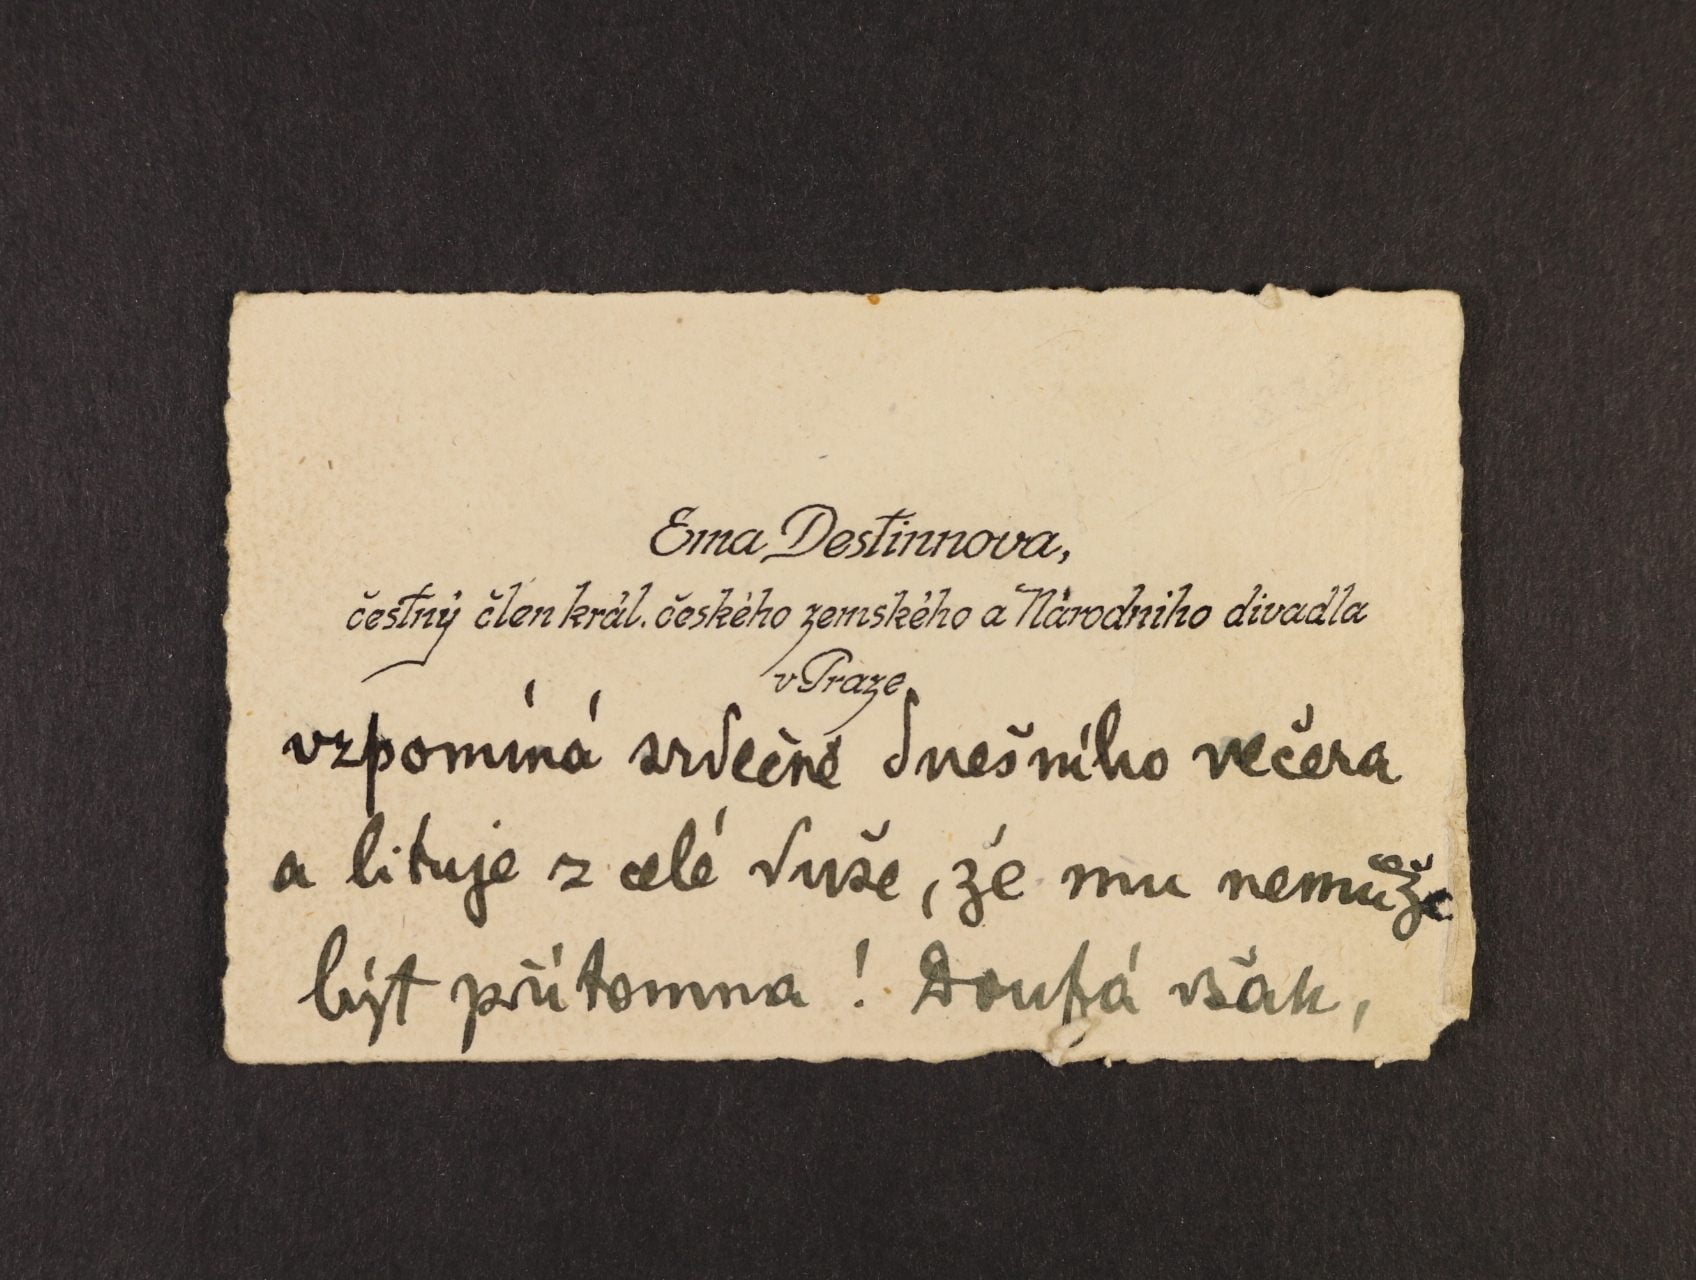 Ema Destinnova,
čestný člen král. českého zemského a Národního divadla
v Praze
vzpomíná srdečně dnešního večera
a lituje z celé duše, že mu nemůže
být přítomna! Doufá však,